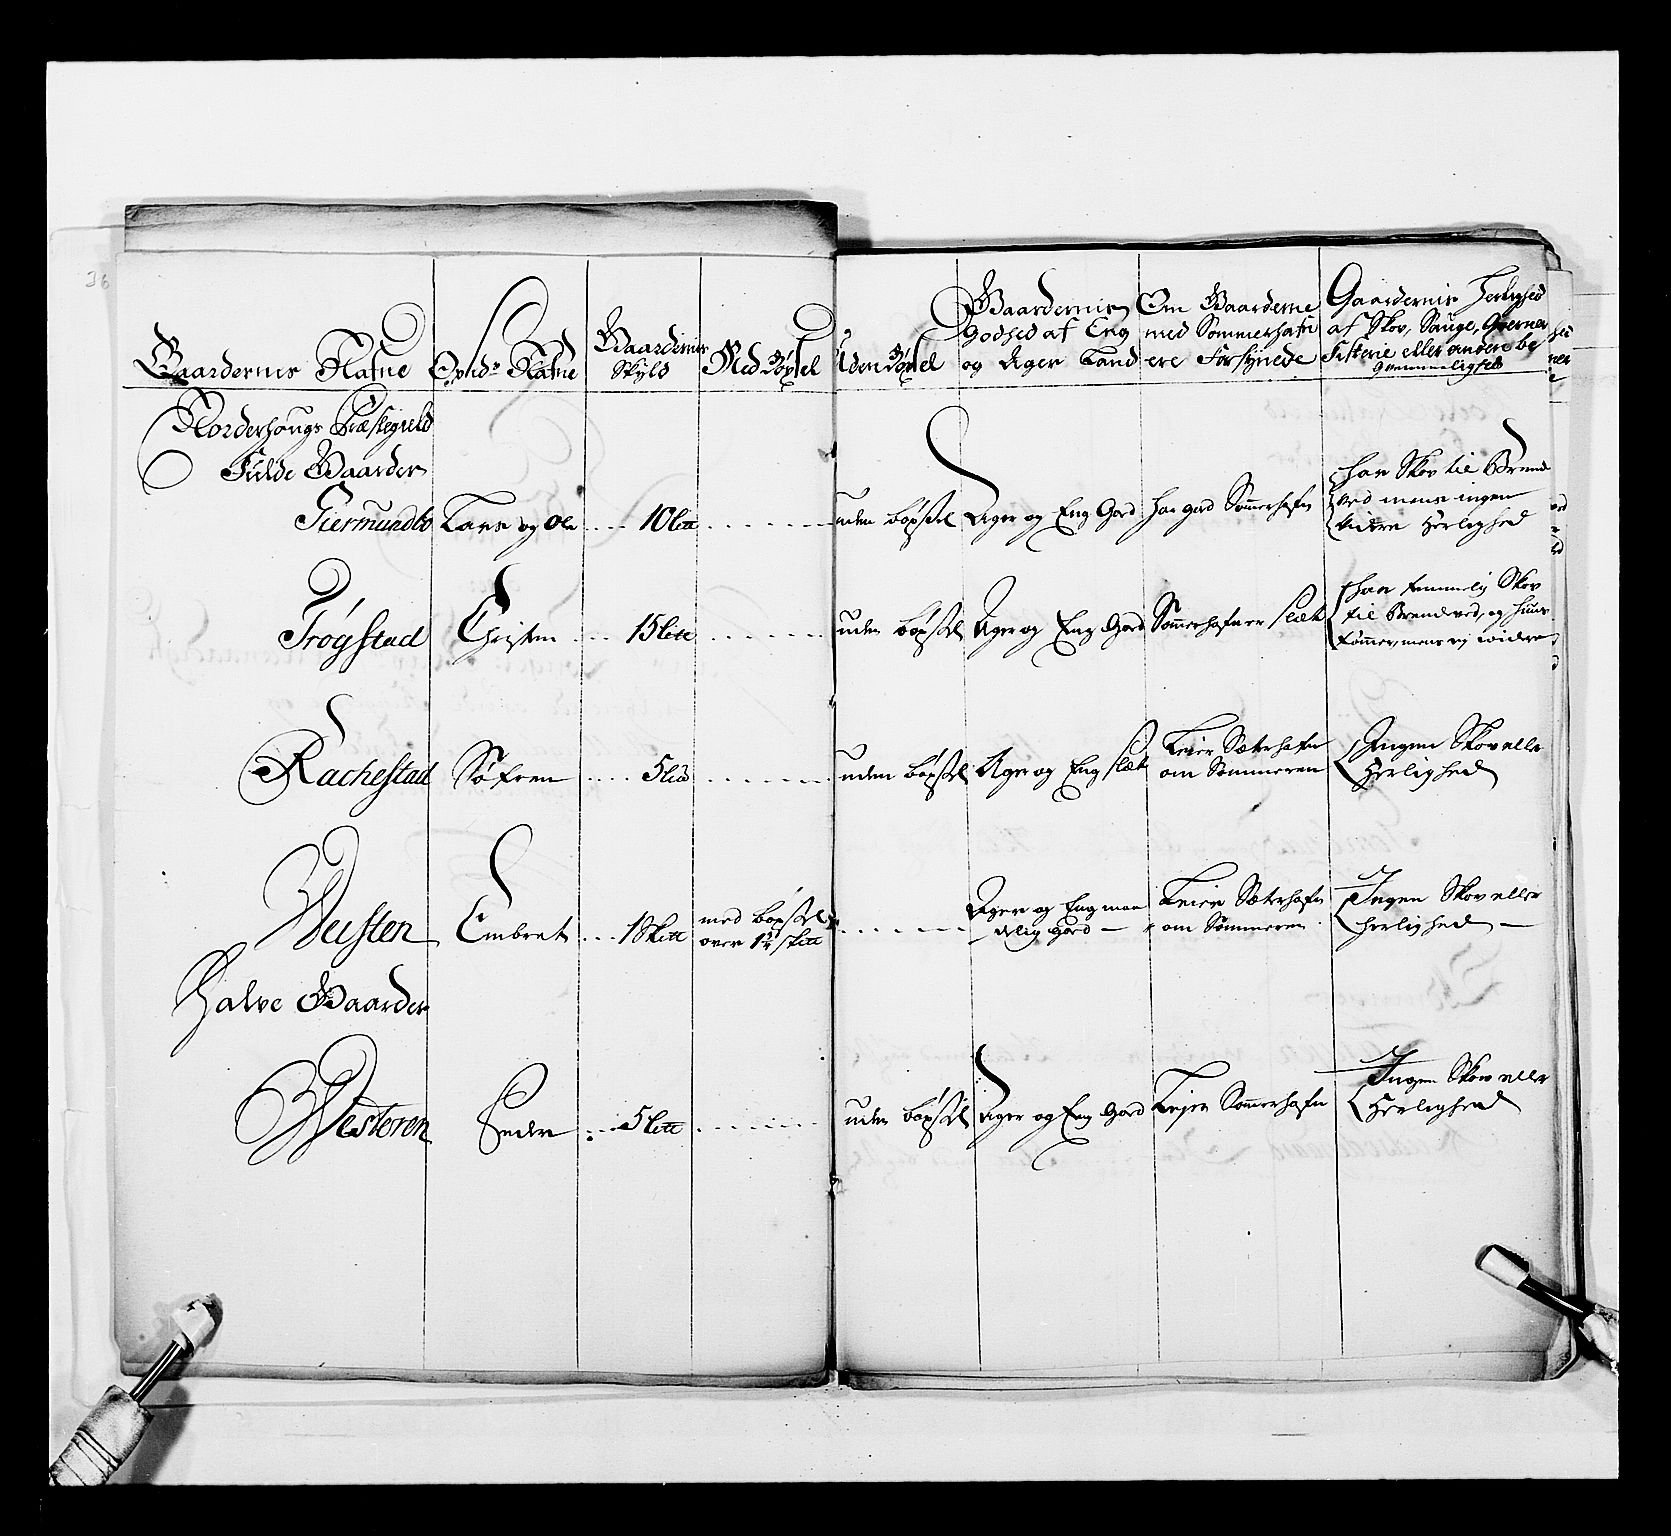 36
Gaardernis Nafne
Opsid:s Nafne
Gaardernis
Skyld
Med Bøxel
Uden Bøxel
Gaardernis
Godhed af Eng
og Ager Land
Om Gaarderne
med Sommerhafn
ere Forsynede
Gaardernis Herlighed
af Skov, Sauge, Qverner
Fiskerie eller anden be
qvemmelighed
Norderhougs Præstegield
Fulde Gaarder
Giermundbo Lars og Ole .... 10 Lett ...... uden bøxsel Ager og Eng God har god Sommerhafn
har Skov til Brend
ved mens ingen
videre Herlighed
Trøgstad Christen ... 15 Lett ...... uden bøxsel Ager og Eng God Sommerhafn er slæt
har temmelig Skov
til Brendved, og Huus
tømmer, mens ej widere
Rachestad Søfren .... 5 Lett ....... uden bøxsel Ager og Eng slæt
Leier Sæterhafn
om Sommeren
Ingen Skov eller
Herlighed
Weisten Embret ... 1 Skett
med bøxsel
over 1½ Skett
Ager og Eng maa
delig God
Leier Sæterhafn
om Sommeren
Ingen Skov eller
herlighed
Halve Gaarder
Westeren Peder ... 5 Lett ...... uden bøxsel Ager og Eng God Leyer Sommerhafn
Ingen Skov eller
Herlighed